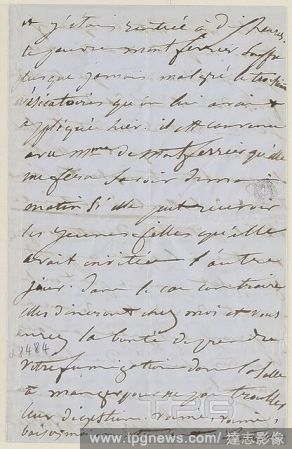 et j'étais rentrée à dix heures
le pauvre montferrier souffre
presque jamais malgré le troisième
vésicatoire qu'on lui avait
appliqué hier. il est convenu
avec Mme de Montferrier qu'elle
me fera savoir demain
matin si elle peut recevoir
les jeunes filles qu'elle
avait invitées l'autre
jour. dans le cas contraire
elles dîneront chez moi et vous
aurez la bonté de prendre
votre fumigation dans la salle
à manger pour ne pas troubler
leur digestion
8484
www.tpgnews.com / 達志影像